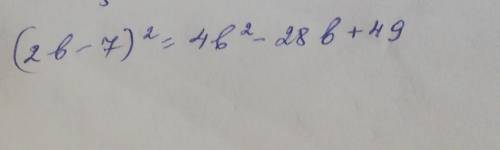 (2b-7)² = 4b² - 28b + 49